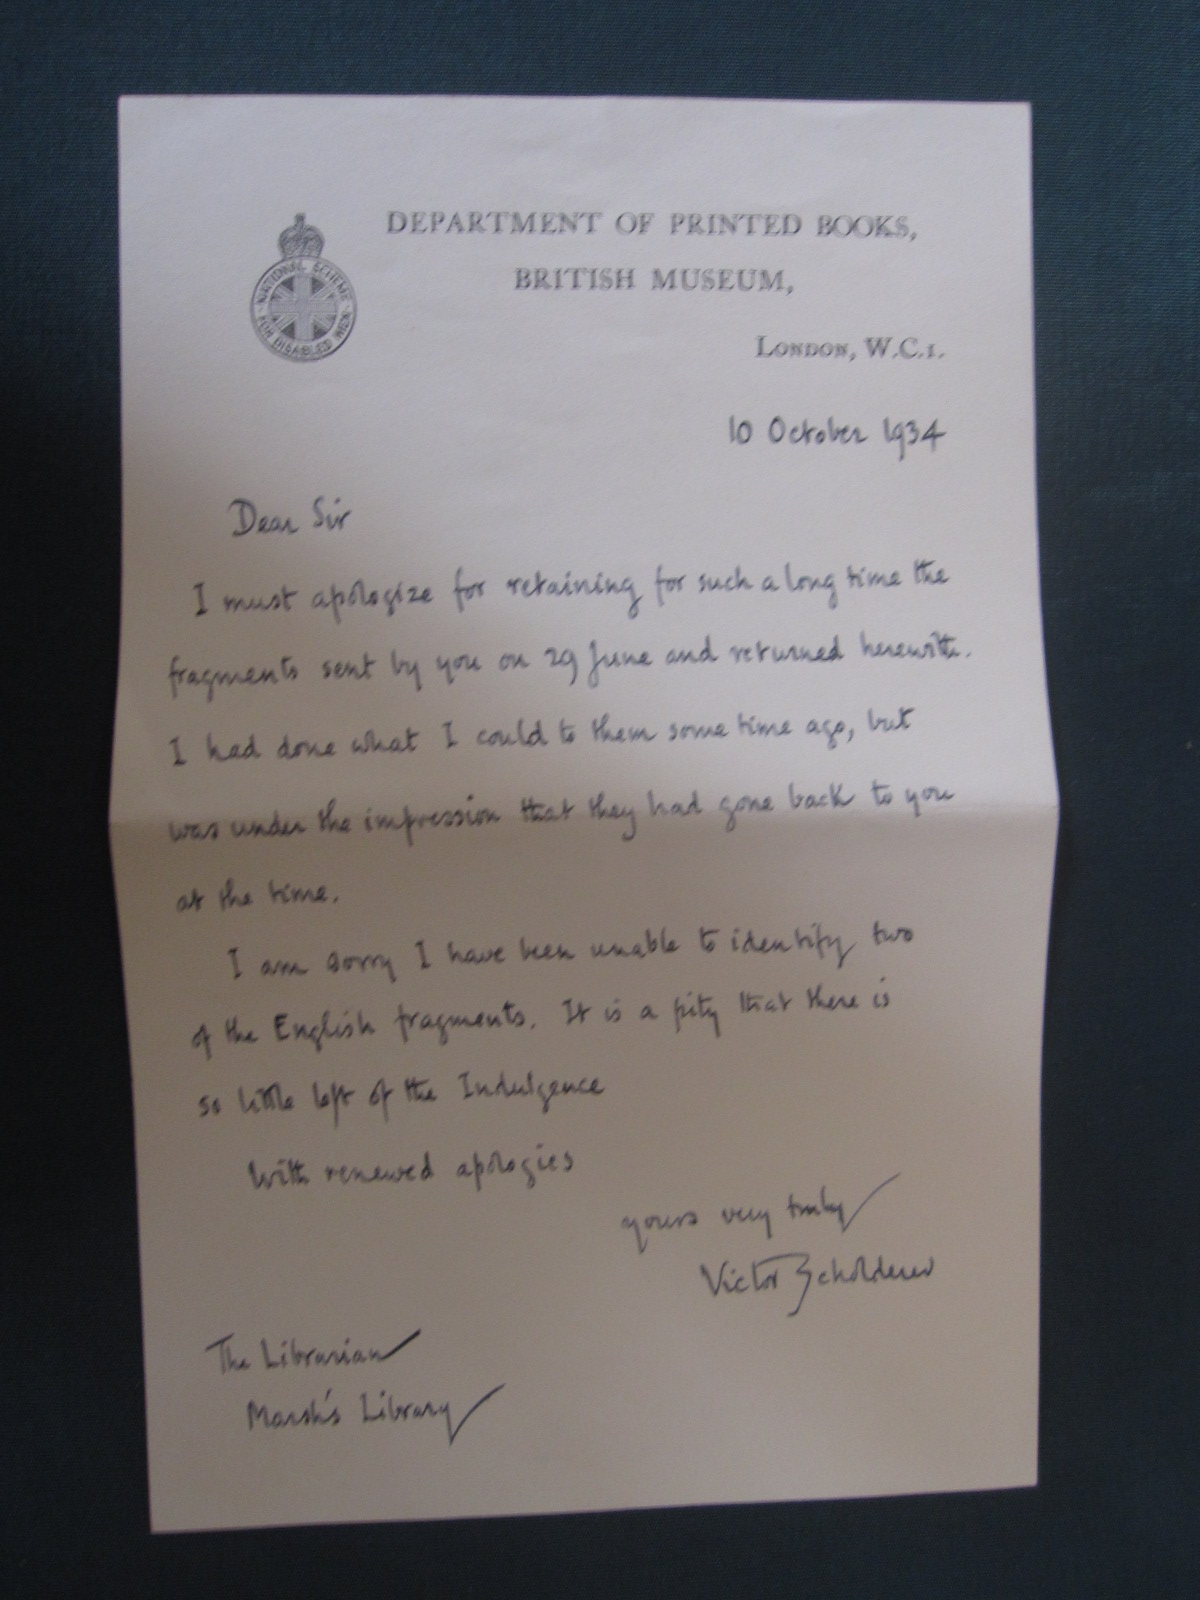 NATIONAL SCHEME
FOR DISABLED MEN
DEPARTMENT OF PRINTED BOOKS,
BRITISH MUSEUM,
LONDON, W.C.1.
10 October 1934
Dear Sir
I must apologize for retaining for such a long time the
fragments sent by you on 29 June and returned herewith.
I had done what I could to them some time ago, but
was under the impression that they had gone back to you
at the time.
I am sorry I have been unable to identify two
of the English fragments. It is a pity that there is
so little left of the Indulgence
With renewed apologies
yours very truly
Victor Scholderer
The Librarian
Marsh's Library